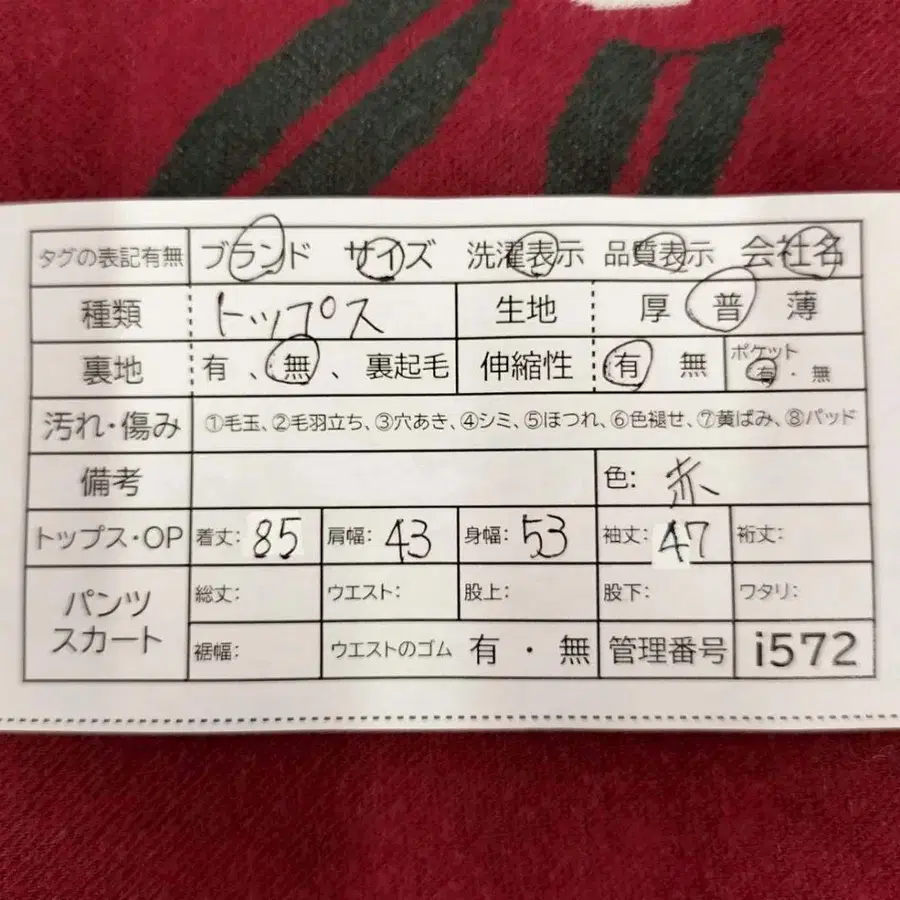 タグの表記有無 ブランド サイズ 洗濯表示 品質表示 会社名
種類 トップス 生地 厚 普 薄
裏地 有 、無 、裏起毛 伸縮性 有 無 ポケット 有・無
汚れ・傷み ①毛玉、②毛羽立ち、③穴あき、④シミ、⑤ほつれ、⑥色褪せ、⑦黄ばみ、⑧パッド
備考 色: 赤
トップス・OP 着丈: 85 肩幅: 43 身幅: 53 袖丈: 47 裄丈:
パンツ スカート 総丈: ウエスト: 股上: 股下: ワタリ:
裾幅: ウエストのゴム 有 ・ 無 管理番号 i572